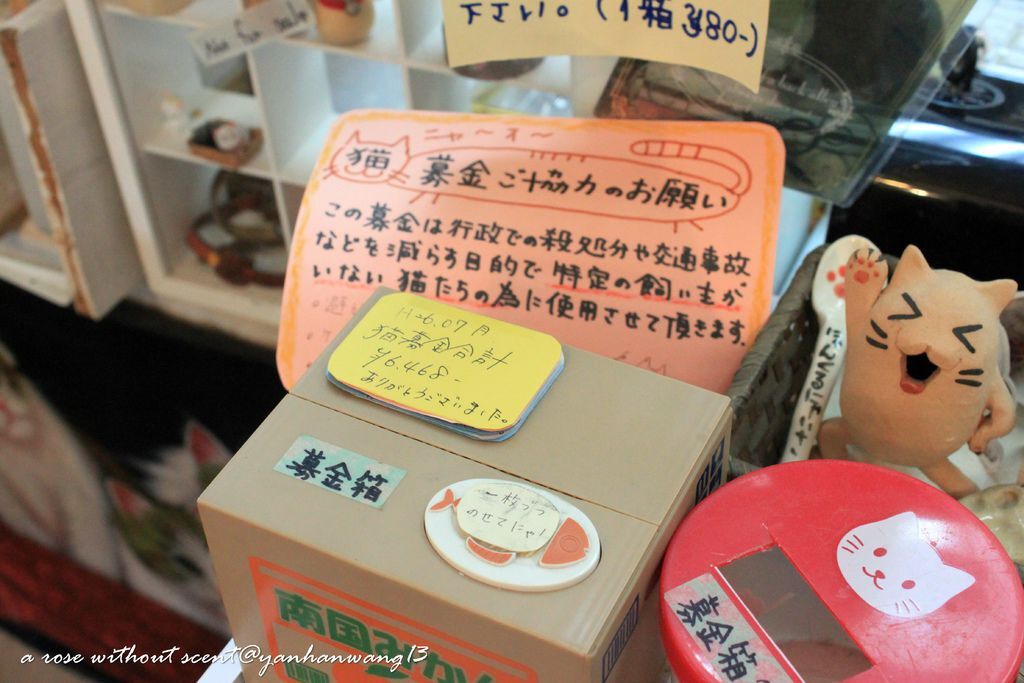 下さい。(1箱 ¥80-)
ニャ〜オ〜
猫 募金 ご協力のお願い
この募金は行政での殺処分や交通事故
などを減らす目的で 特定の飼い主が
いない 猫たちの為に使用させて頂きます。
H26.07月
猫募金合計
¥6.468-
ありがとうございました。
募金箱
一枚づつ
のせてにゃ!
南国みかん
募金箱
a rose without scent@yanhanwang13